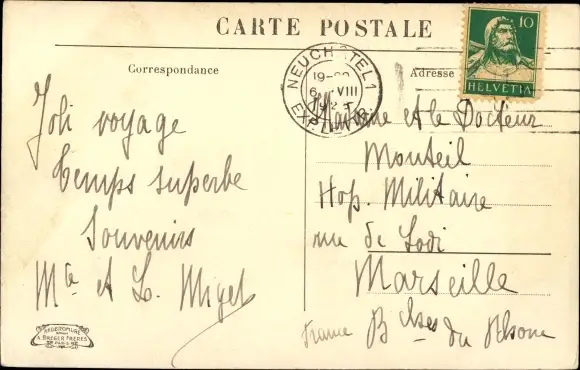 CARTE POSTALE
Correspondance
Adresse
10
HELVETIA
NEUCHATEL 1
19-
6 VIII
EXP. LETTR.
Joli voyage
temps superbe
Souvenirs
Mte et L. Miget
Madame et le Docteur
Monteil
Hop. Militaire
rue de Lodi
Marseille
France Bches du Rhone
A. BREGER FRÈRES
PARIS